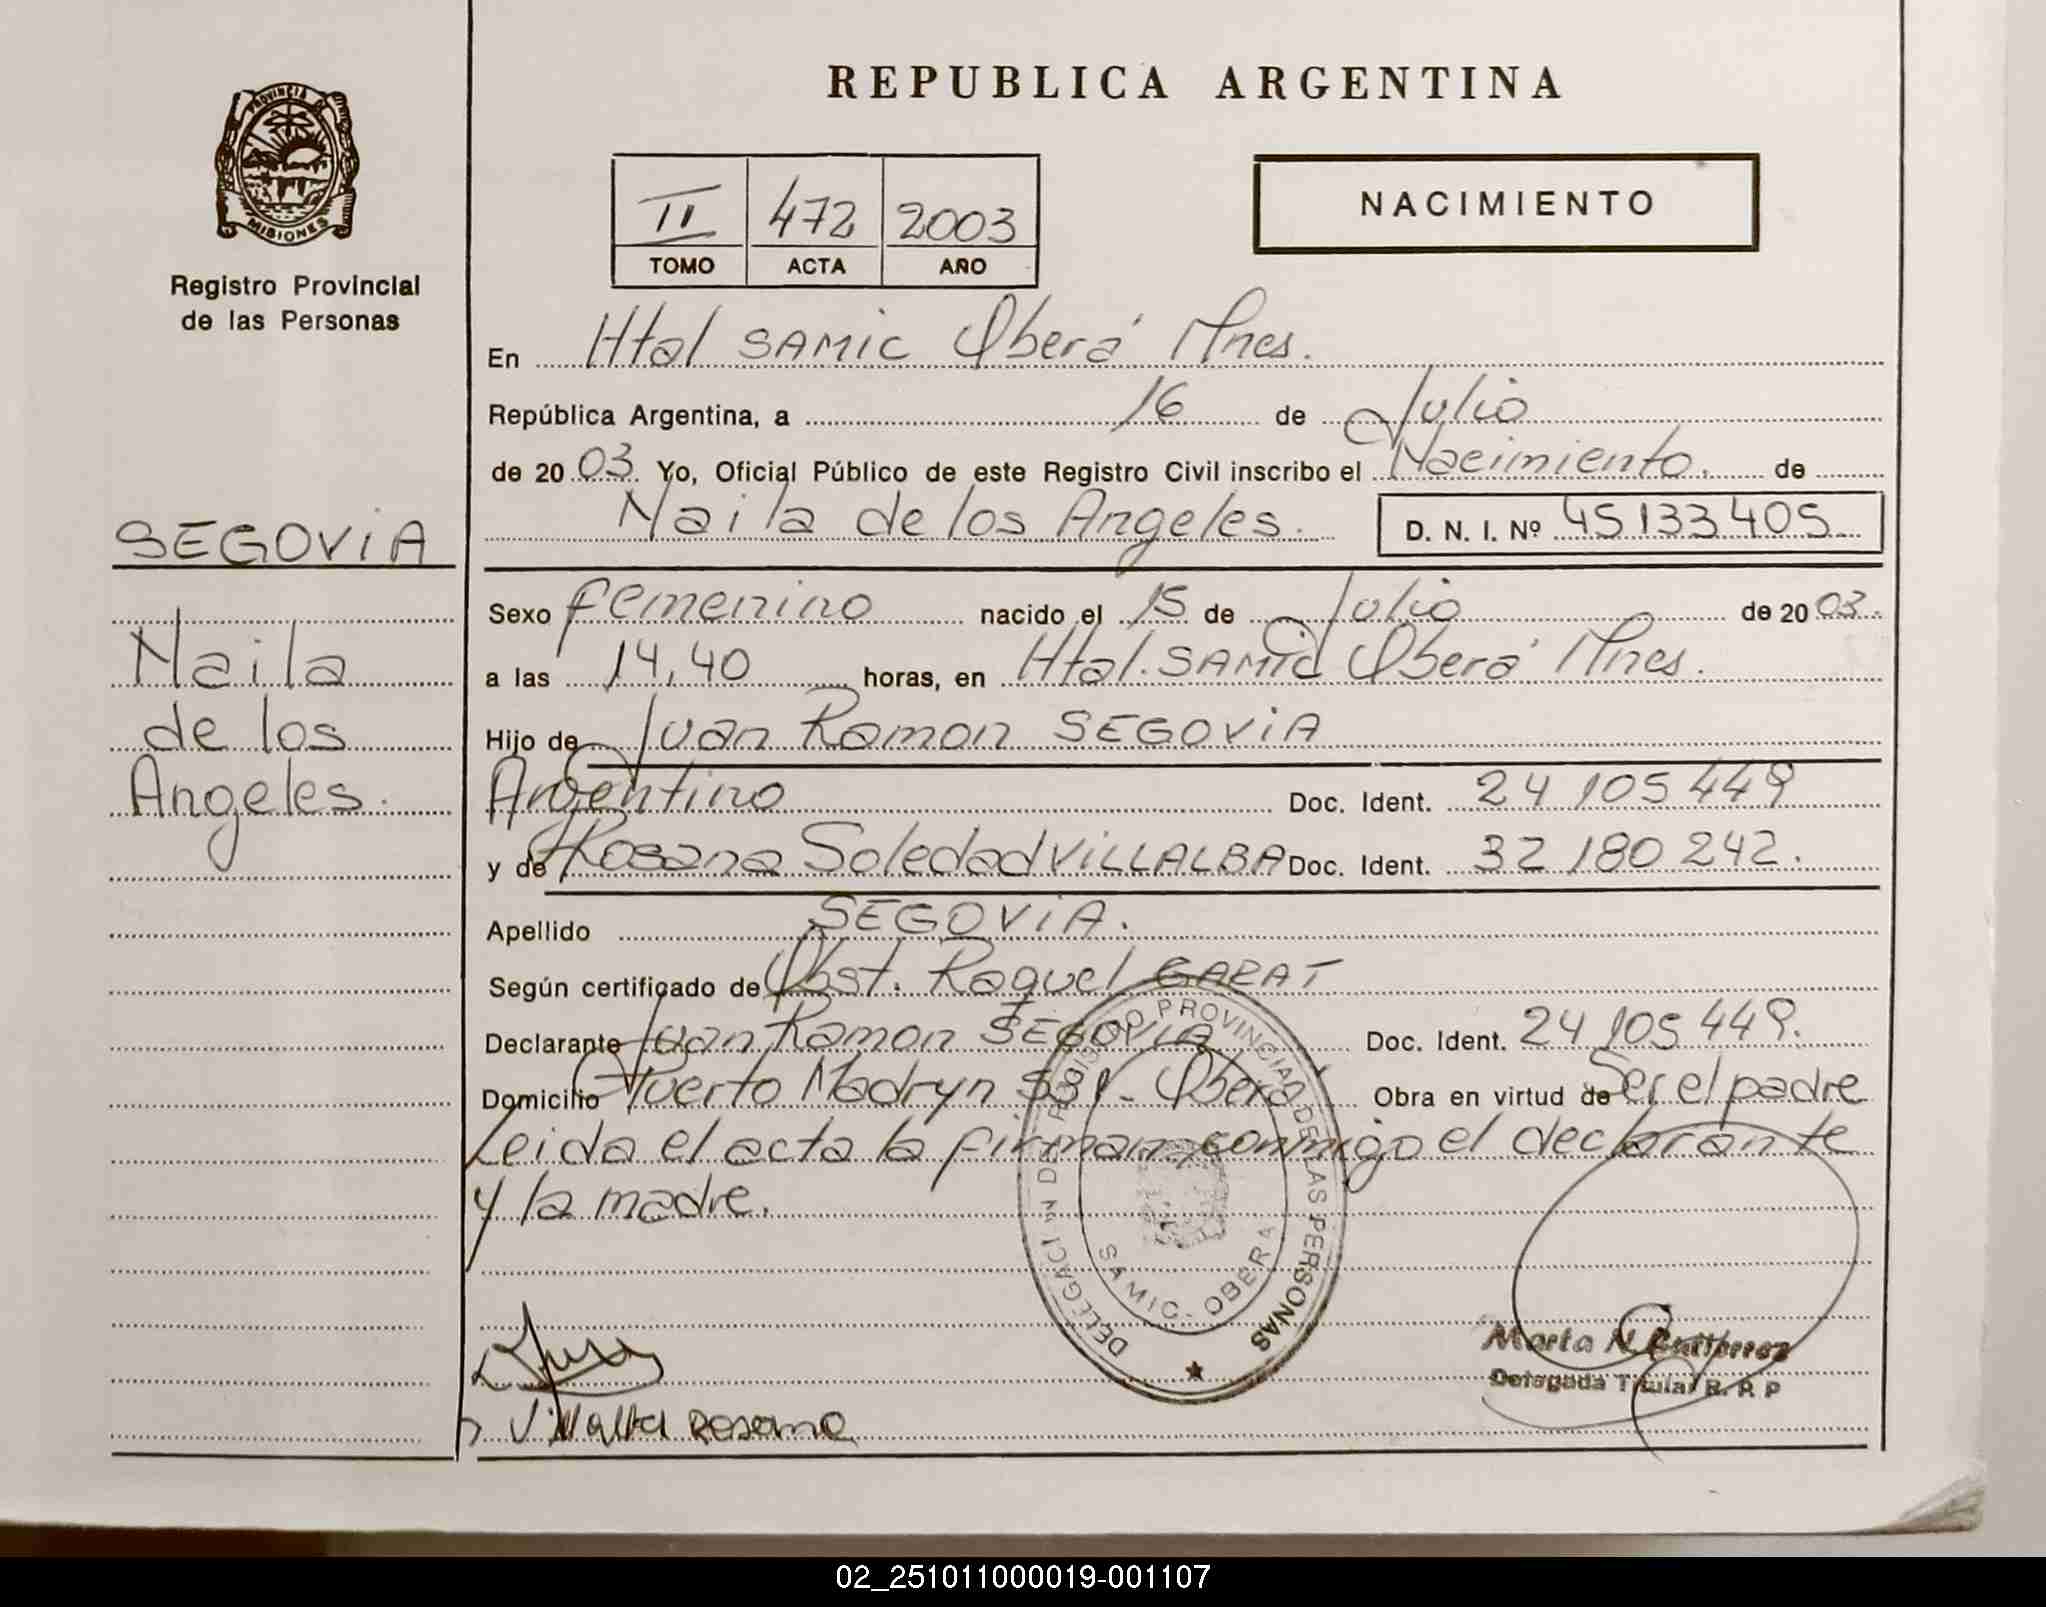 REPUBLICA ARGENTINA
PROVINCIA DE MISIONES
Registro Provincial
de las Personas
II 472 2003
TOMO ACTA AÑO
NACIMIENTO
En Htal SAMIC Oberá Mnes.
República Argentina, a 16 de Julio
de 2003 Yo, Oficial Público de este Registro Civil inscribo el Nacimiento. de
Naila de los Angeles. D. N. I. Nº 45133405
SEGOVIA
Naila
de los
Angeles.
Sexo femenino nacido el 15 de Julio de 2003.
a las 14,40 horas, en Htal. SAMIC Oberá Mnes.
Hijo de Juan Ramon SEGOVIA
Argentino Doc. Ident. 24 105 449
y de Rosana Soledad VILLALBA Doc. Ident. 32 180 242.
Apellido SEGOVIA.
Según certificado de Obst. Raquel GARAT
Declarante Juan Ramon SEGOVIA Doc. Ident. 24 105 449.
Domicilio Puerto Madryn 531 - Oberá Obra en virtud de Ser el padre
Leida el acta la firman conmigo el declarante
y la madre.
DELEGACION DEL REGISTRO PROVINCIAL DE LAS PERSONAS
SAMIC - OBERA
Marta N. Gutierrez
Delegada Titular R. P. P
Villalba Rosana
02_251011000019-001107